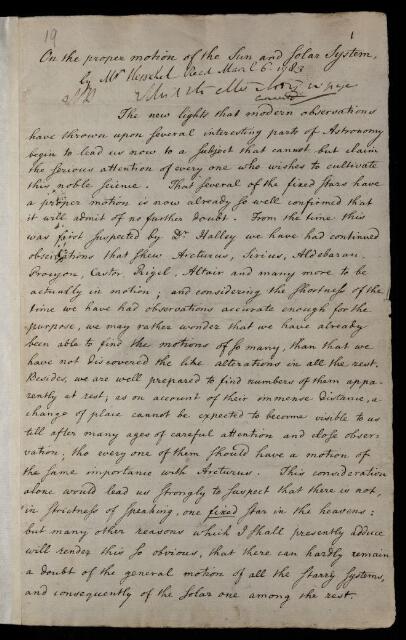 19
1
On the proper motion of the Sun and Solar System,
by Mr. Herschel Read March 6. 1783
The new lights that modern observations
have thrown upon several interesting parts of Astronomy
begin to lead us now to a subject that cannot but claim
the serious attention of every one who wishes to cultivate
this noble science. That several of the fixed stars have
a proper motion is now already so well confirmed that
it will admit of no further doubt. From the time this
was first suspected by Dr. Halley we have had continued
observations that shew Arcturus, Sirius, Aldebaran,
Procyon, Castor, Rigel, Altair and many more to be
actually in motion; and considering the shortness of the
time we have had observations accurate enough for the
purpose, we may rather wonder that we have already
been able to find the motions of so many, than that we
have not discovered the like alterations in all the rest.
Besides, we are well prepared to find numbers of them appa-
rently at rest; as on account of their immense distance, a
change of place cannot be expected to become visible to us
till after many ages of careful attention and close obser-
vation, tho every one of them should have a motion of
the same importance with Arcturus. This consideration
alone would lead us strongly to suspect that there is not,
in strictness of speaking, one fixed star in the heavens:
but many other reasons which I shall presently adduce
will render this so obvious, that there can hardly remain
a doubt of the general motion of all the starry systems,
and consequently of the solar one among the rest.